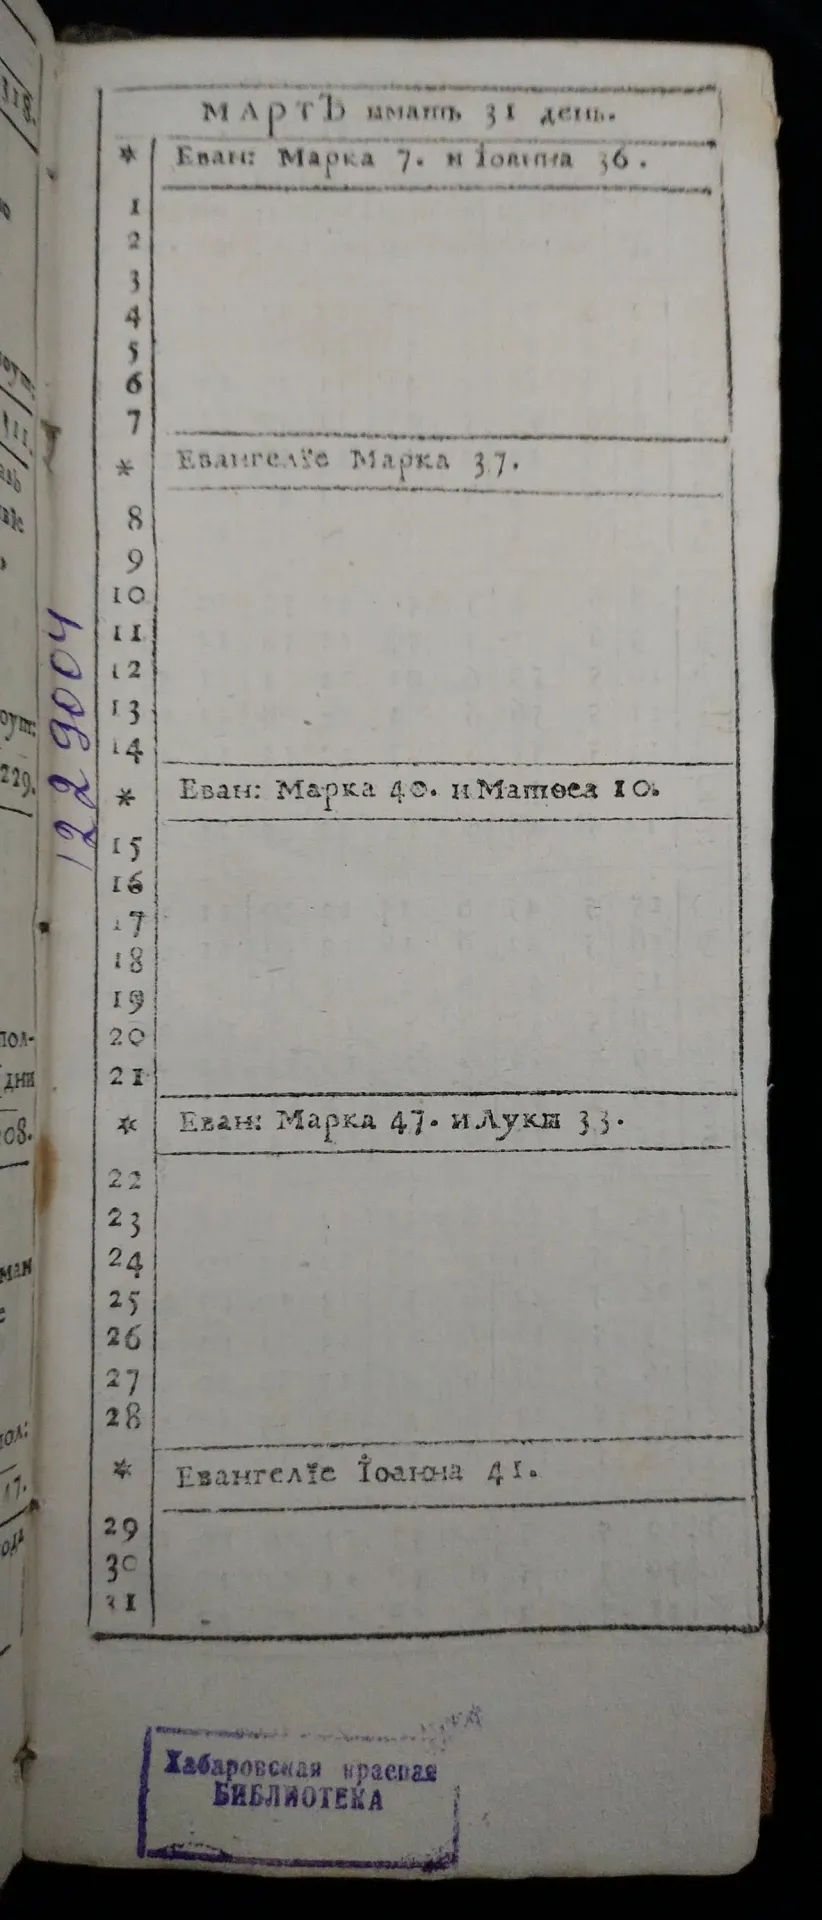 МАРТЪ имать 31 день.
* Еван: Марка 7. и Іоанна 36.
1
2
3
4
5
6
7
* Евангелїе Марка 37.
8
9
10
11
12
13
14
* Еван: Марка 40. и Матѳеа 10.
15
16
17
18
19
20
21
* Еван: Марка 47. и Луки 33.
22
23
24
25
26
27
28
* Евангелїе Іоанна 41.
29
30
31
1229004
Хабаровская краевая
БИБЛИОТЕКА
318.
оут:
229.
пол-
дни
208.